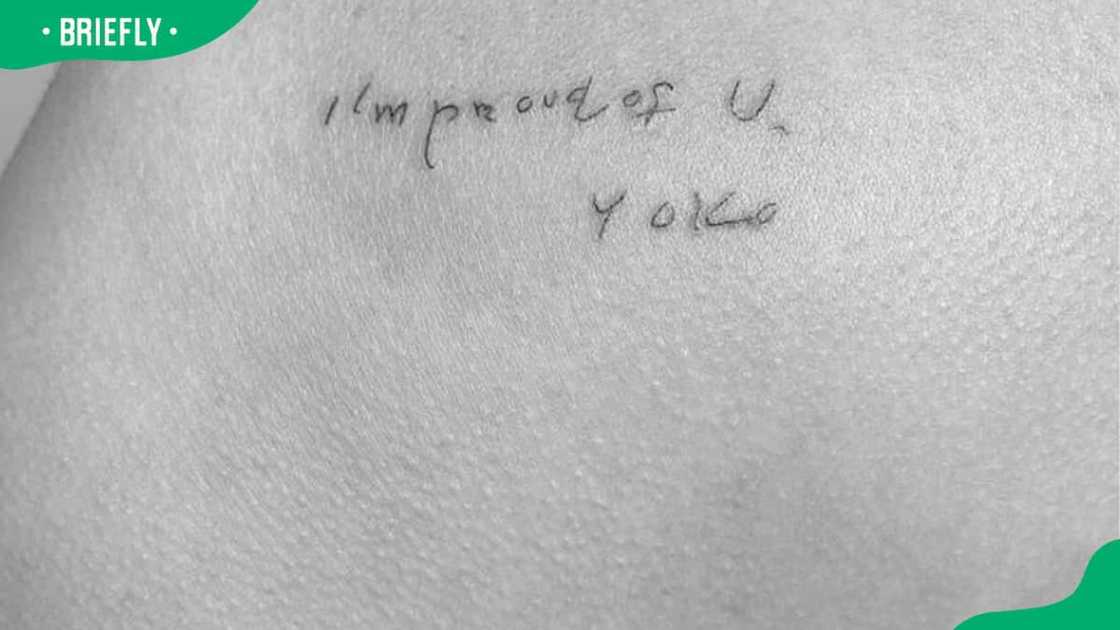 • BRIEFLY •
I'm proud of U.
YOKO